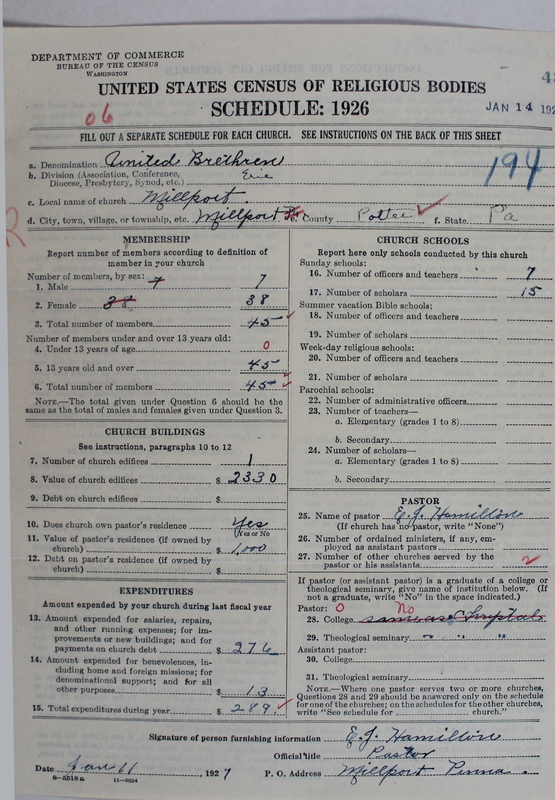 DEPARTMENT OF COMMERCE
BUREAU OF THE CENSUS
WASHINGTON
UNITED STATES CENSUS OF RELIGIOUS BODIES
SCHEDULE: 1926
JAN 14 192
06
FILL OUT A SEPARATE SCHEDULE FOR EACH CHURCH. SEE INSTRUCTIONS ON THE BACK OF THIS SHEET
194
a. Denomination United Brethren
b. Division (Association, Conference, Diocese, Presbytery, Synod, etc.) Erie
c. Local name of church Millport
d. City, town, village, or township, etc. Millport e. County Potter f. State Pa
R
MEMBERSHIP
Report number of members according to definition of member in your church
Number of members, by sex:
1. Male 7 7
2. Female 38 38
3. Total number of members 45
Number of members under and over 13 years old:
4. Under 13 years of age 0
5. 13 years old and over 45
6. Total number of members 45
NOTE.—The total given under Question 6 should be the same as the total of males and females given under Question 3.
CHURCH BUILDINGS
See instructions, paragraphs 10 to 12
7. Number of church edifices 1
8. Value of church edifices $ 2330
9. Debt on church edifices $
10. Does church own pastor's residence Yes
(Yes or No)
11. Value of pastor's residence (if owned by church) $ 1,000
12. Debt on pastor's residence (if owned by church) $
EXPENDITURES
Amount expended by your church during last fiscal year
13. Amount expended for salaries, repairs, and other running expenses; for improvements or new buildings; and for payments on church debt $ 276
14. Amount expended for benevolences, including home and foreign missions; for denominational support; and for all other purposes $ 13
15. Total expenditures during year $ 289
CHURCH SCHOOLS
Report here only schools conducted by this church
Sunday schools:
16. Number of officers and teachers 7
17. Number of scholars 15
Summer vacation Bible schools:
18. Number of officers and teachers
19. Number of scholars
Week-day religious schools:
20. Number of officers and teachers
21. Number of scholars
Parochial schools:
22. Number of administrative officers
23. Number of teachers—
a. Elementary (grades 1 to 8)
b. Secondary
24. Number of scholars—
a. Elementary (grades 1 to 8)
b. Secondary
PASTOR
25. Name of pastor E.J. Hamilton
(If church has no pastor, write "None")
26. Number of ordained ministers, if any, employed as assistant pastors
27. Number of other churches served by the pastor or his assistants 2
If pastor (or assistant pastor) is a graduate of a college or theological seminary, give name of institution below. (If not a graduate, write "No" in the space indicated.)
Pastor: 0 No
28. College
29. Theological seminary " " "
Assistant pastor:
30. College
31. Theological seminary
NOTE.—Where one pastor serves two or more churches, Questions 28 and 29 should be answered only on the schedule for one of the churches; on the schedules for the other churches, write "See schedule for church."
Signature of person furnishing information E.J. Hamilton
Official title Pastor
Date Jan 11, 1927 P. O. Address Millport Penna.
8—5518a 11—6254